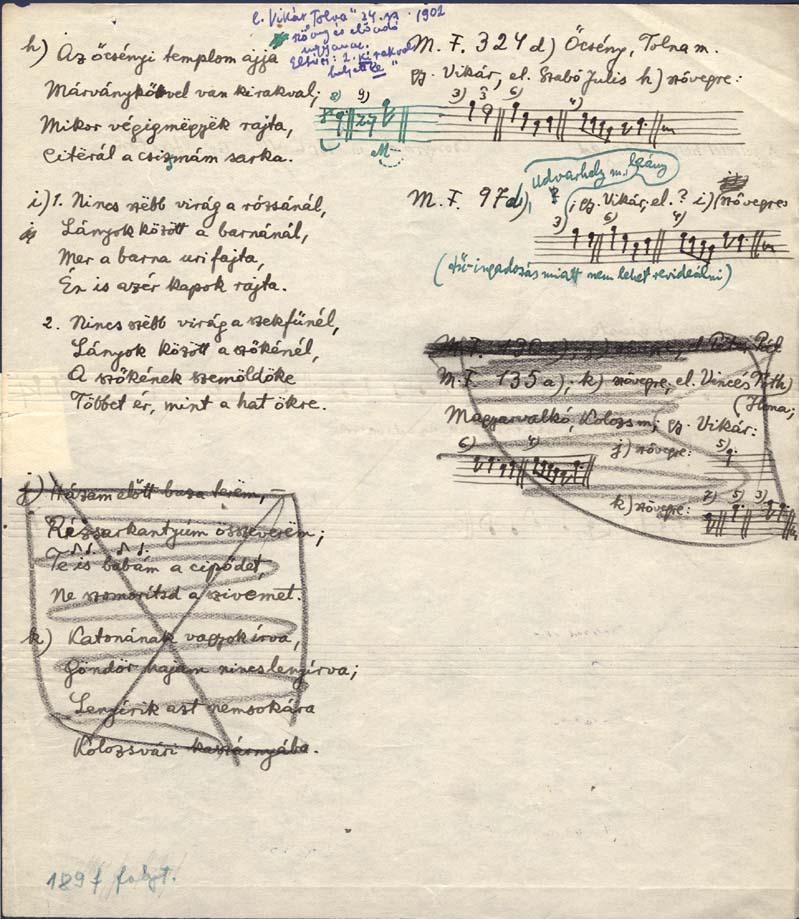 l. Vikár Tolna" 24. sz 1902
szöveg és előadó
ugyanaz.
Eltérés: 2. ki rakval
helyett ze"
h) Az őcsényi templom ajja
Márványkővel van kirakval;
Mikor végigmëgyëk rajta,
Citërál a csizmám sarka.
M. F. 324 d) Őcsény, Tolna m.
gy. Vikár, el. Szabó Julis h) szövegre:
8) 9) 3) 3 6) 4)
M
i) 1. Nincs szëbb virág a rózsánál,
Lányok között a barnánál,
Mer a barna uri fajta,
Én is azér kapok rajta.
Udvarhely m. leány
M. F. 97d), ? ; gy. Vikár, el. ? i) szövegre
3) 6) 4)
(idő-ingadozás miatt nem lehet revideálni)
2. Nincs szëbb virág a szekfűnél,
Lányok között a szőkénél,
A szőkének szemöldöke
Többet ér, mint a hat ökre.
M. F. 135 a); k) szövegre, el. Vincés Kath
Ilona;
Magyarvalkó, Kolozs m; gy. Vikár:
6) 4) j) szövegre: 5)
k) szövegre: 7) 5) 3)
j) Házam előtt buza terëm, –
Rézsarkantyúm összeverëm;
Te is babám a cipődet,
Ne szomorítsd a szivemet.
k) Katonának vagyok írva,
Göndör hajam nincs lenyírva;
Lenyírik azt nemsokára
Kolozsvári kaszárnyába.
1897 folyt.